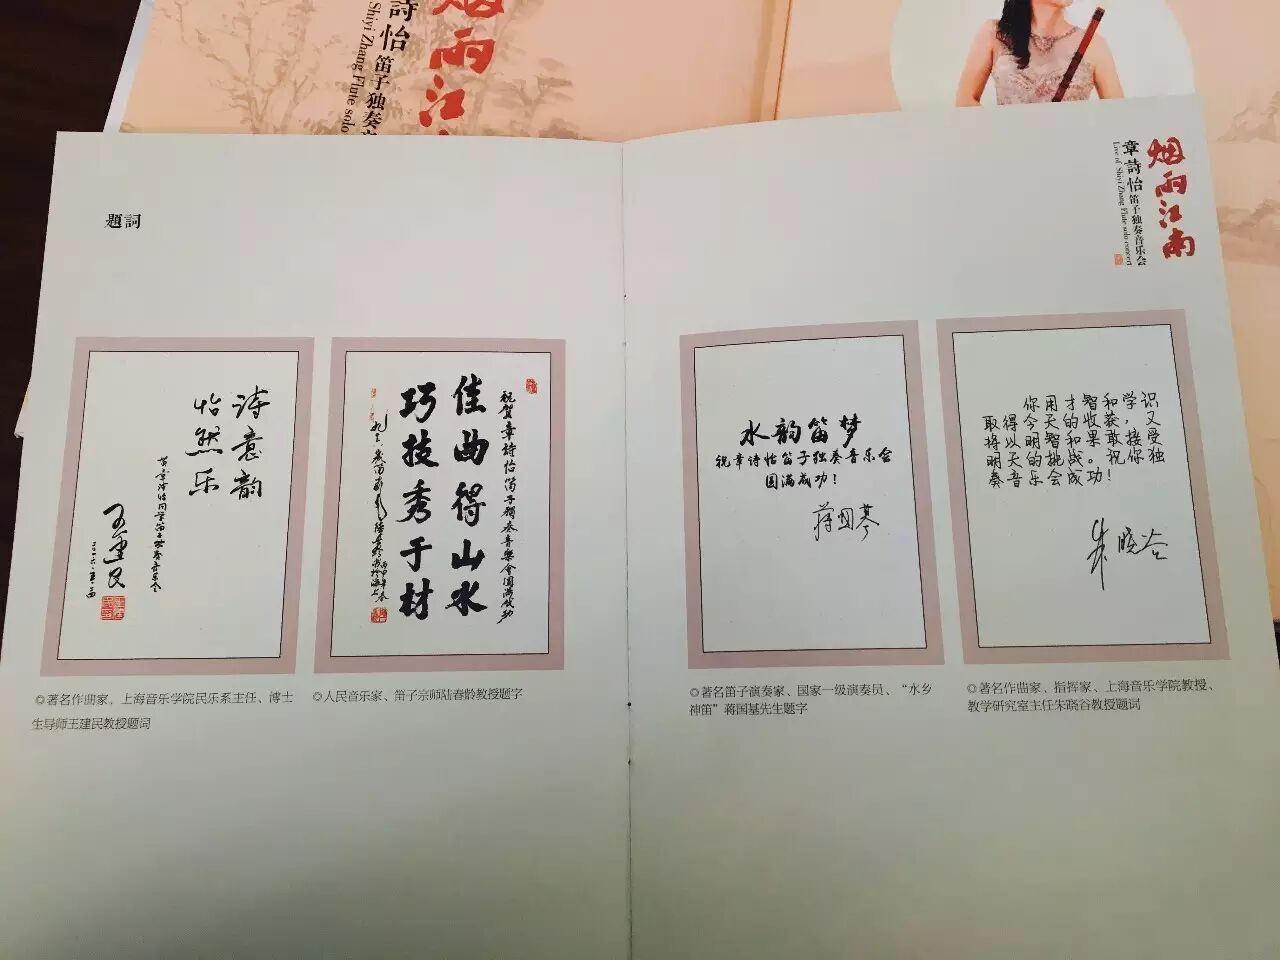 烟雨江南
詩怡 笛子独奏音
Shiyi Zhang Flute solo
题詞
烟雨江南
章詩怡笛子独奏音乐会
Live of Shiyi Zhang Flute solo concert
诗意韵
怡然乐
王建民
祝贺章诗怡笛子獨奏音樂會圆满成功
佳曲得山水
巧技秀于材
水韵笛梦
祝章诗怡笛子独奏音乐会
圆满成功！
蒋国基
你用才智和学识
取得今天的收获，又
将以明智和果敢接受
明天的挑战。祝你独
奏音乐会成功！
朱晓谷
◎著名作曲家，上海音乐学院民乐系主任、博士
生导师王建民教授题词
◎人民音乐家、笛子宗师陆春龄教授题字
◎著名笛子演奏家、国家一级演奏员、“水乡
神笛”蒋国基先生题字
◎著名作曲家、指挥家、上海音乐学院教授、
教学研究室主任朱晓谷教授题词